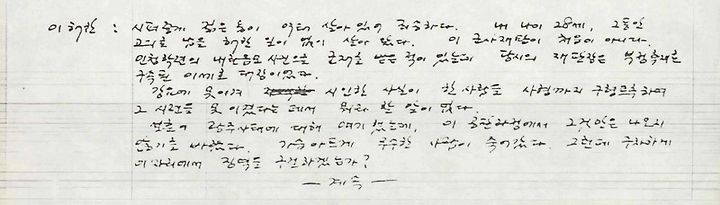 이해찬 : 시퍼렇게 젊은 놈이 여태 살아있어 죄송하다. 내 나이 28세, 그동안
고의로 남을 해한 일이 없이 살아 왔다. 이 군사재판이 처음이 아니다.
민청학련의 내란음모사건으로 군재를 받은 적이 있는데 당시의 재판장은 부정축재로
구속된 이세호 대장이었다.
강요에 못이겨 시인한 사실이 한 사람을 사형까지 구형토록하여
그 시련을 못 이겼다는 데에서 뭐라 할 말이 없다.
변호인 광주사태에 대해 얘기했는데, 이 공판과정에서 그것만은 나오지
않기를 바랬다. 가슴아프게 무수한 사람이 죽어갔다. 그런데 구차하게
이 자리에서 징역을 구걸하겠는가?
— 계속 —